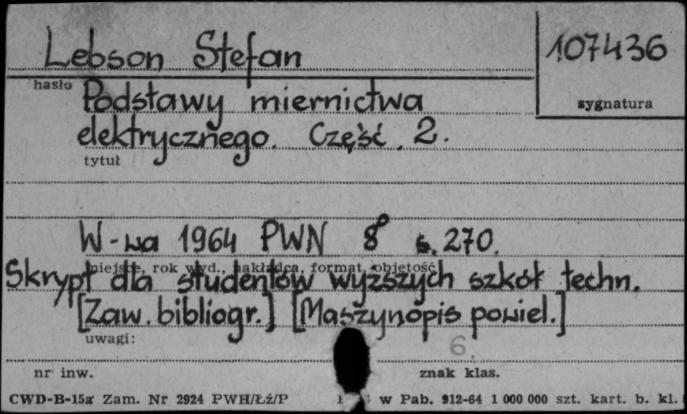 Lebson Stefan
107436
hasło
sygnatura
Podstawy miernictwa
elektrycznego. Część. 2.
tytuł
W-wa 1964 PWN 8° s. 270.
miejsce, rok wyd., nakładca, format, objętość
Skrypt dla studentów wyższych szkół techn.
[Zaw. bibliogr.] [Maszynopis powiel.]
uwagi:
6.
nr inw.
znak klas.
CWD-B-15a Zam. Nr 2924 PWH/Łź/P w Pab. 912-64 1 000 000 szt. kart. b. kl.